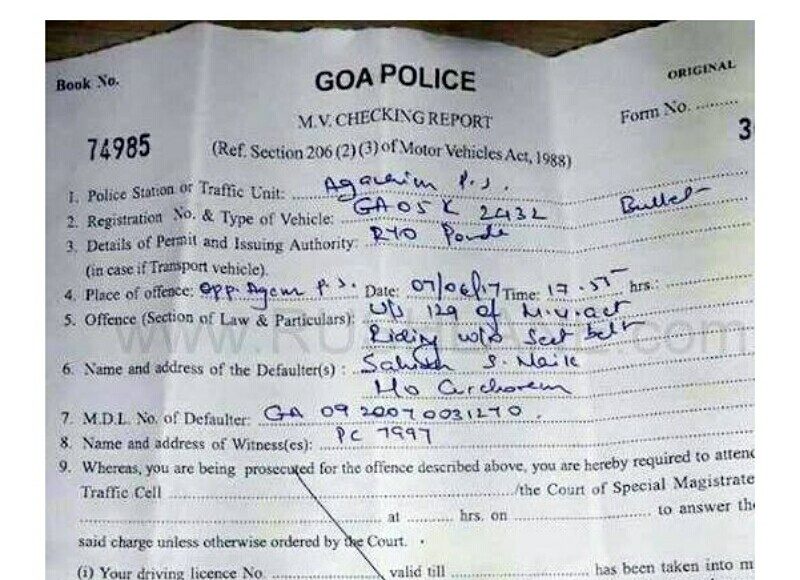 Book No.
GOA POLICE
ORIGINAL
M.V. CHECKING REPORT
Form No. .........
74985
3
(Ref. Section 206 (2) (3) of Motor Vehicles Act, 1988)
1. Police Station or Traffic Unit: Agacaim P.S.
2. Registration No. & Type of Vehicle: GA05K 2432 Bullet
3. Details of Permit and Issuing Authority: RTO Ponda
(in case if Transport vehicle).
4. Place of offence: Opp. Agcm P.S. Date: 07/06/17 Time: 17.55 hrs.:
5. Offence (Section of Law & Particulars): U/s 129 of M.V. act
Riding w/o Seat belt
6. Name and address of the Defaulter(s) : S. Naik
7. M.D.L. No. of Defaulter: GA 09 20070031270.
8. Name and address of Witness(es): PC 7997
9. Whereas, you are being prosecuted for the offence described above, you are hereby required to attend
Traffic Cell ............ /the Court of Special Magistrate
............ at ......... hrs. on ............ to answer the
said charge unless otherwise ordered by the Court.
(i) Your driving licence No. ............ valid till ............ has been taken into m